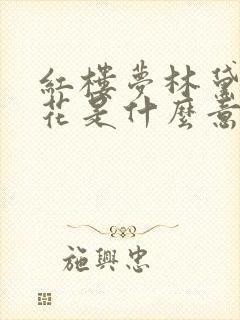 紅樓夢林黛
花是什麼意
施興忠